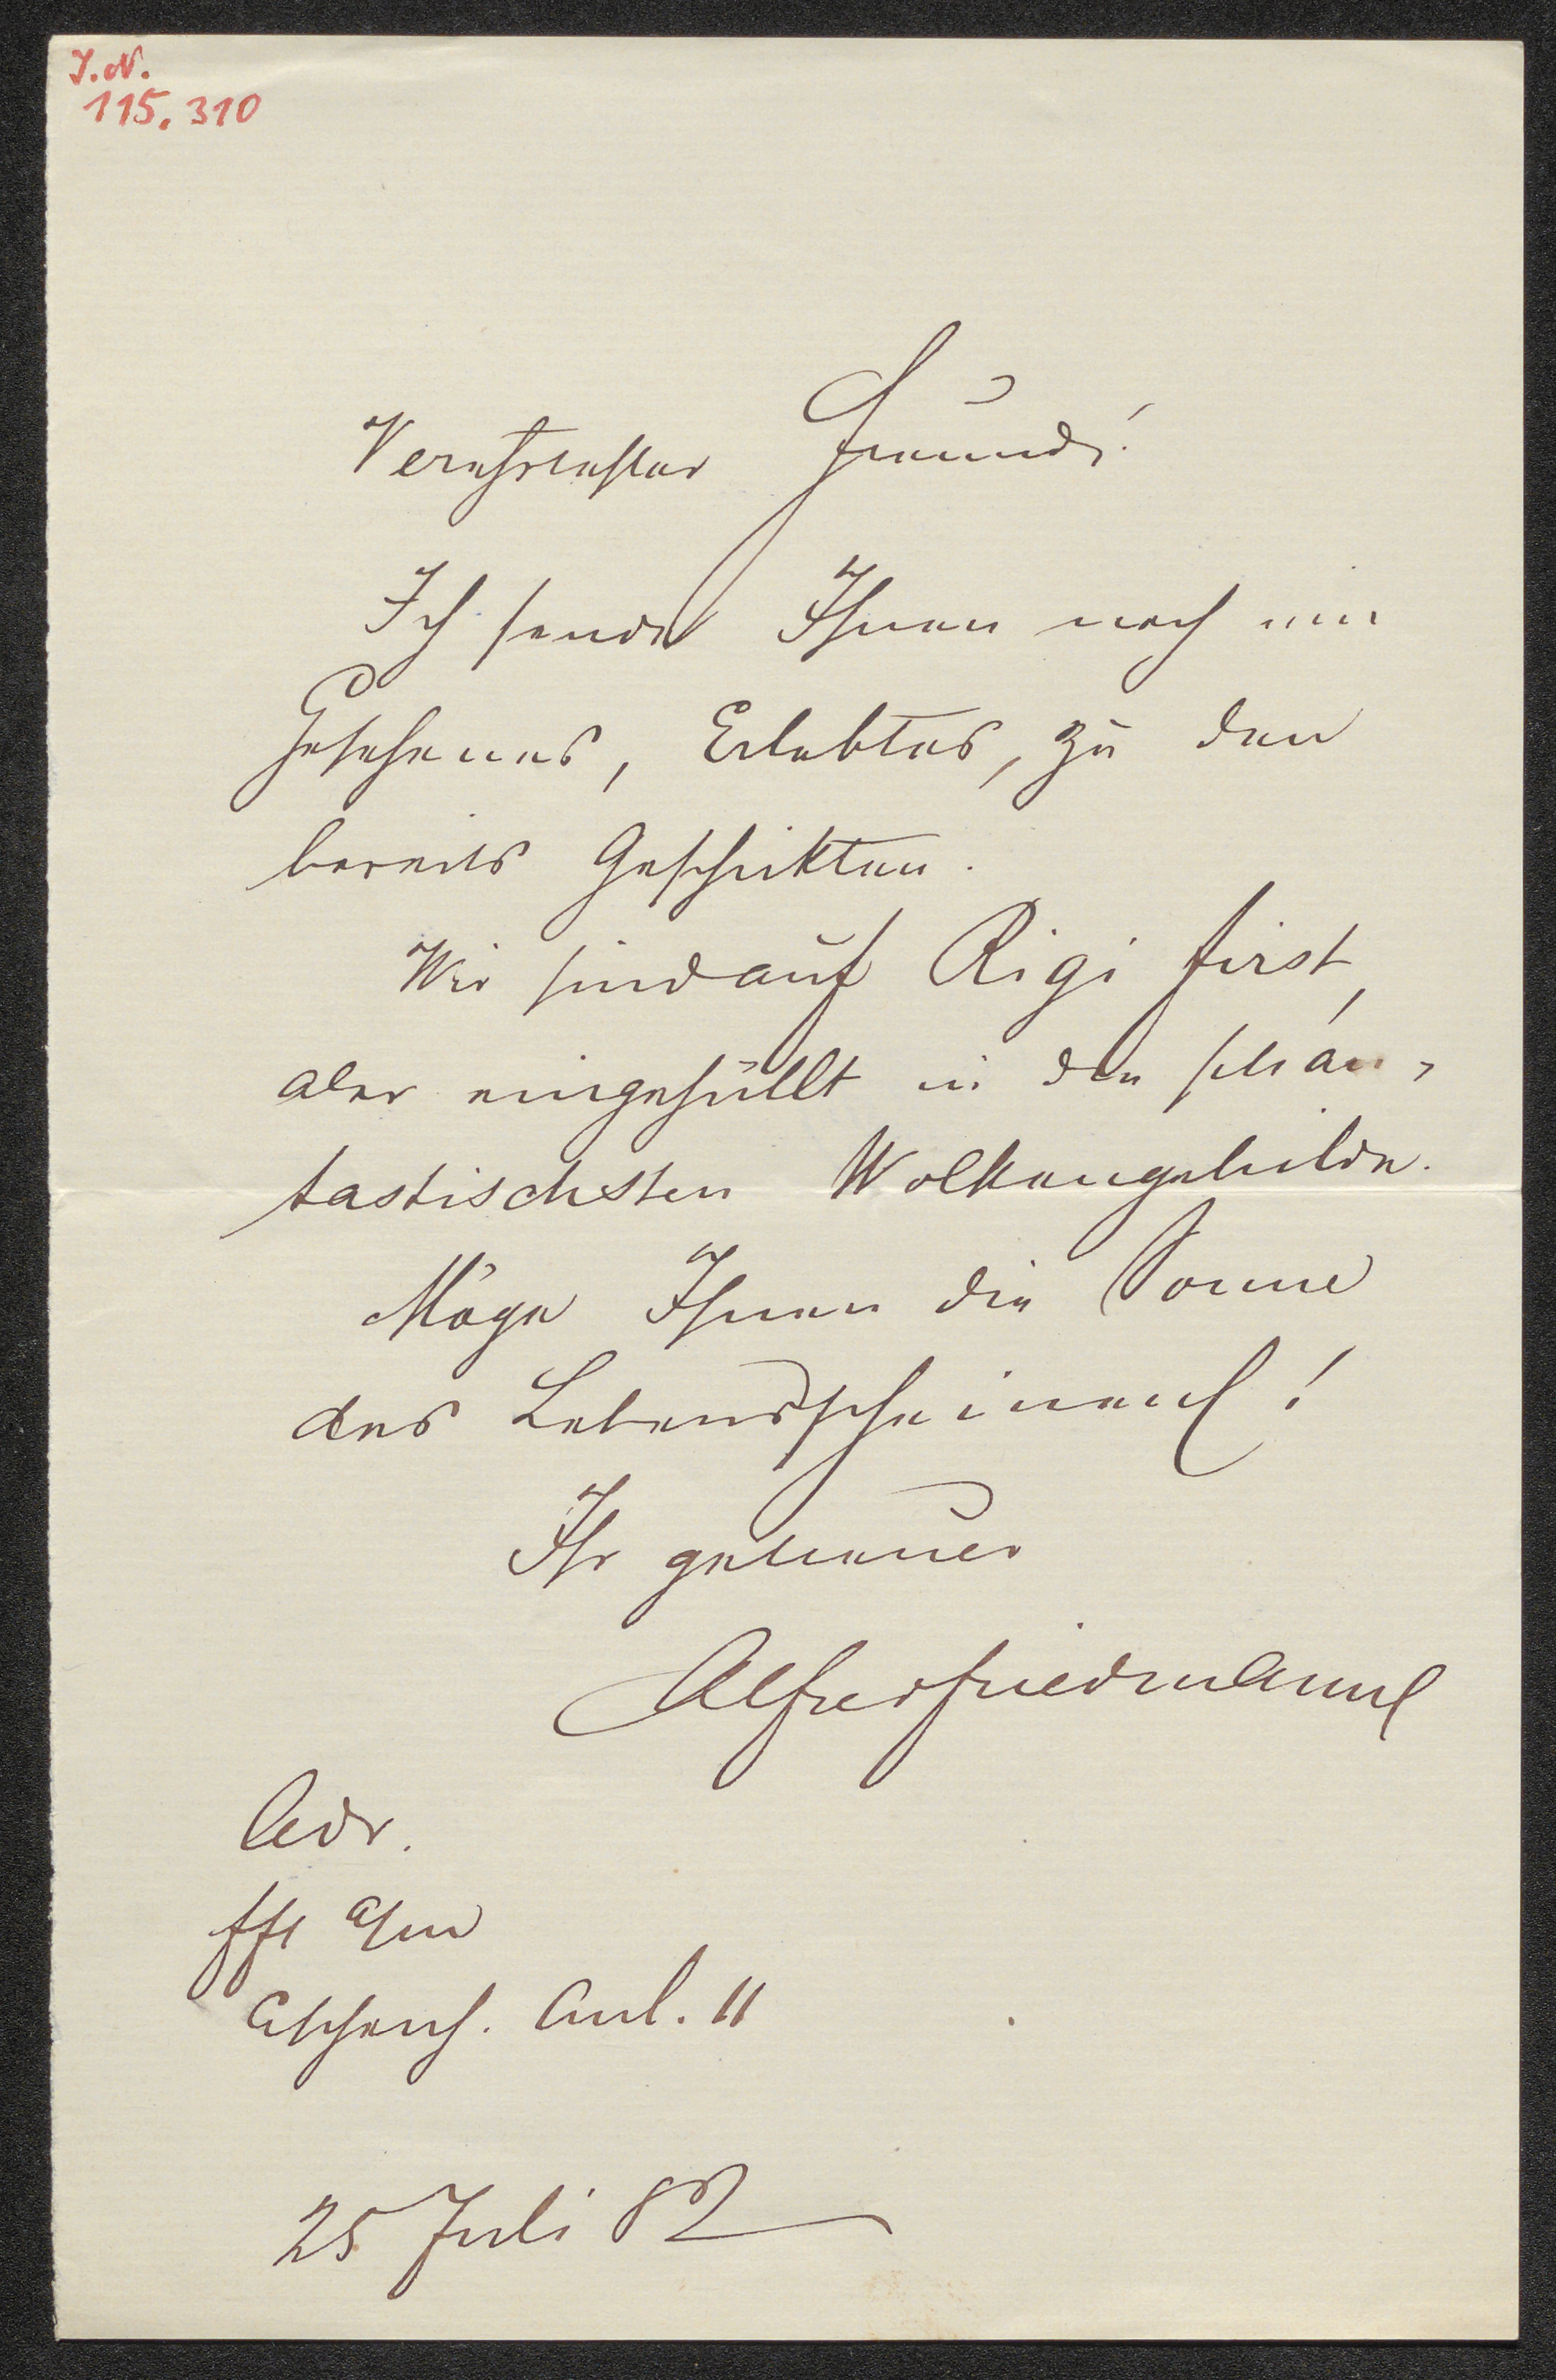 J. N.
115.310
Verehrtester Freund!
Ich sende Ihnen noch ein
Gesehenes, Erlebtes, zu den
bereits Geschikten.
Wir sind auf Rigi first,
aber eingehüllt in den phan-
tastischsten Wolkengebilde.
Möge Ihnen die Sonne
des Lebens scheinen!
Ihr getreuer
Alfred Friedmann
Adr.
Fft a/m
Eschenh. Anl. 11
25 Juli 82